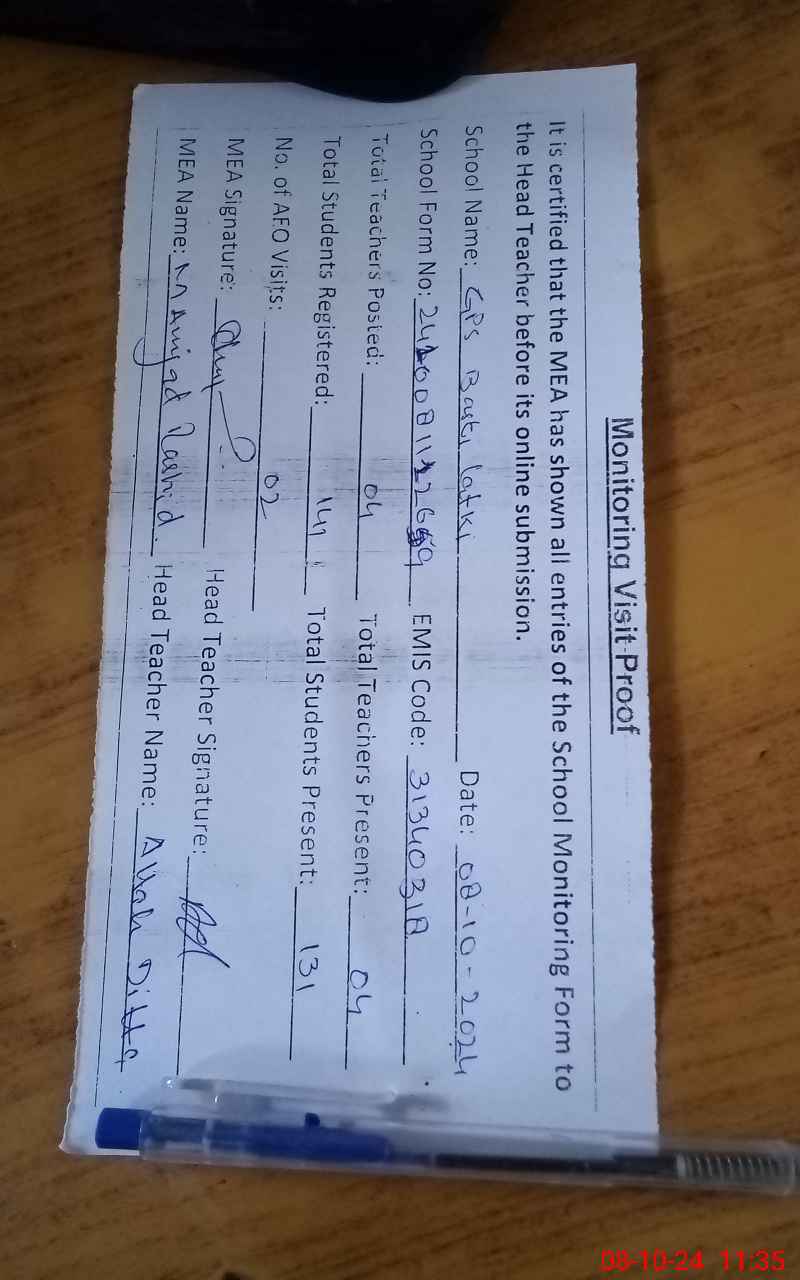 Monitoring Visit Proof
It is certified that the MEA has shown all entries of the School Monitoring Form to
the Head Teacher before its online submission.
School Name: GPS Basti latki Date: 08-10-2024
School Form No: EMIS Code: 31340318
Total Teachers Posted: 04 Total Teachers Present: 04
Total Students Registered: 141 Total Students Present: 131
No. of AEO Visits: 02
MEA Signature: Head Teacher Signature:
MEA Name: Amjad Rashid Head Teacher Name: Allah Ditta
08-10-24 11:35